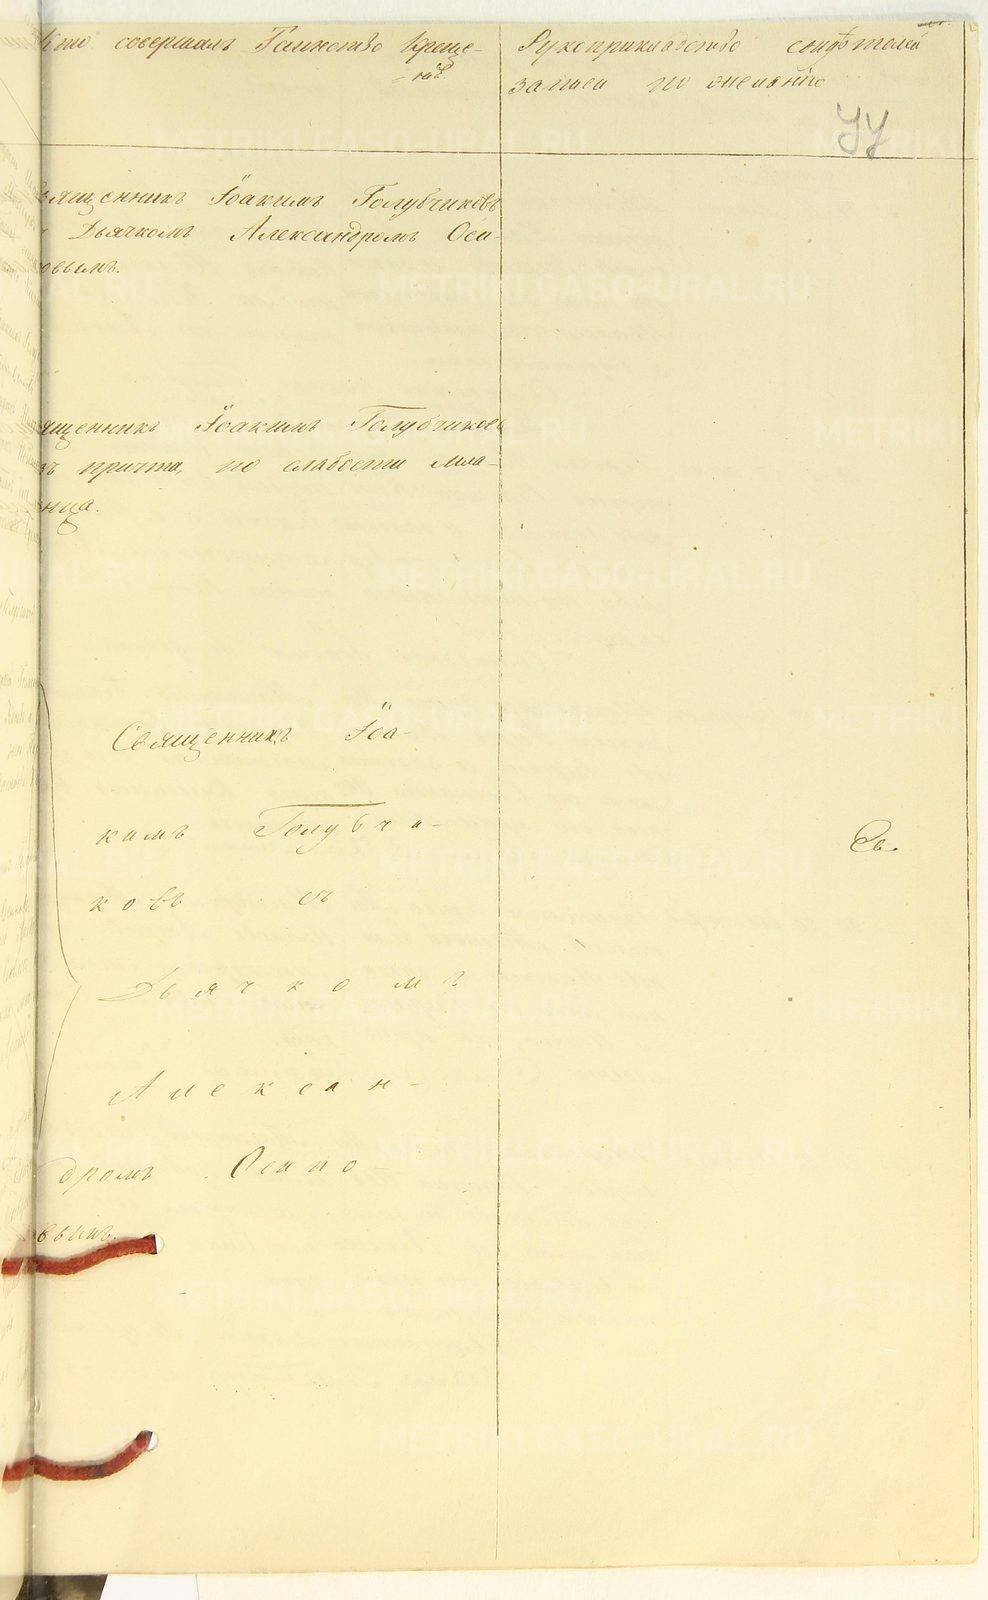 Кто совершалъ Таинство Креще-
нiя.
Рукоприкладство свидѣтелей
записи по желанiю
священникъ Iоакимъ Голубчиковъ
Дьячкомъ Александромъ Оси-
овымъ.
ященникъ Iоакимъ Голубчиковъ
причта, по слабости мла-
нца.
Священникъ Iоа-
кимъ Голубчи-
ковъ съ
Дьячкомъ
Алексан-
дромъ Осипо-
вымъ.
Св.
METRIKI.GASO-URAL.RU